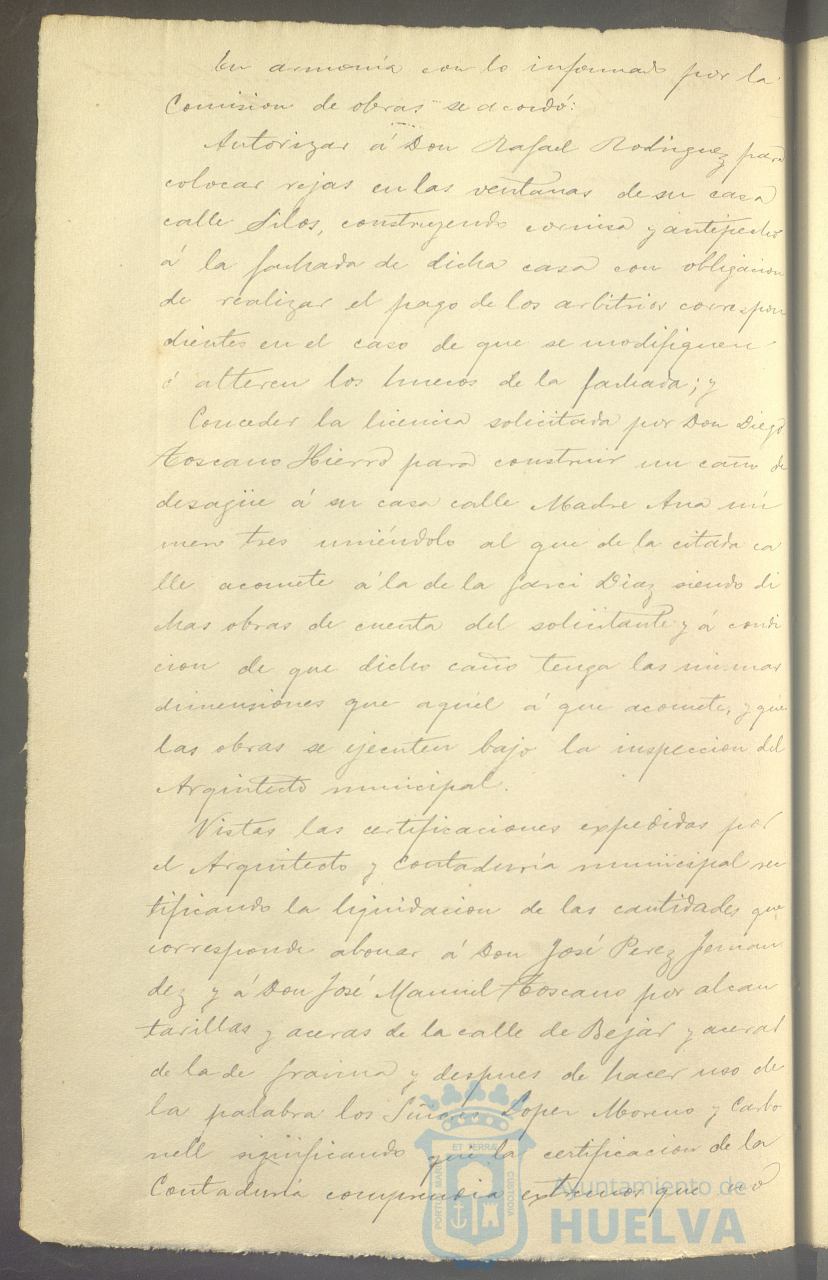 En armonía con lo informado por la
Comision de obras se acordó:
Autorizar á Don Rafael Rodriguez para
colocar rejas en las ventanas de su casa
calle Silos, construyendo cornisa y antepecho
á la fachada de dicha casa con obligacion
de realizar el pago de los arbitrios correspon
dientes en el caso de que se modifiquen
ó alteren los huecos de la fachada; y
Conceder la licencia solicitada por Don Diego
Toscano Hierro para construir un caño de
desagüe á su casa calle Madre Ana nú
mero tres uniéndolo al que de la citada ca
lle acomete á la de la Garci Diaz siendo di
chas obras de cuenta del solicitante y á condi
cion de que dicho caño tenga las mismas
dimensiones que aquel á que acomete, y que
las obras se ejecuten bajo la inspeccion del
Arquitecto municipal.
Vistas las certificaciones expedidas por
el Arquitecto y Contaduría municipal rec
tificando la liquidacion de las cantidades que
corresponde abonar á Don José Perez Fernan
dez y á Don José Manuel Toscano por alcan
tarillas y aceras de la calle de Bejar y aceras
de la de Gravina y despues de hacer uso de
la palabra los Señores Lopez Moreno y Carbo
nell significando que la certificacion de la
Contaduría comprendia extremos que no
PORTUS MARIS ET TERRAE CUSTODIA
Ayuntamiento de
HUELVA